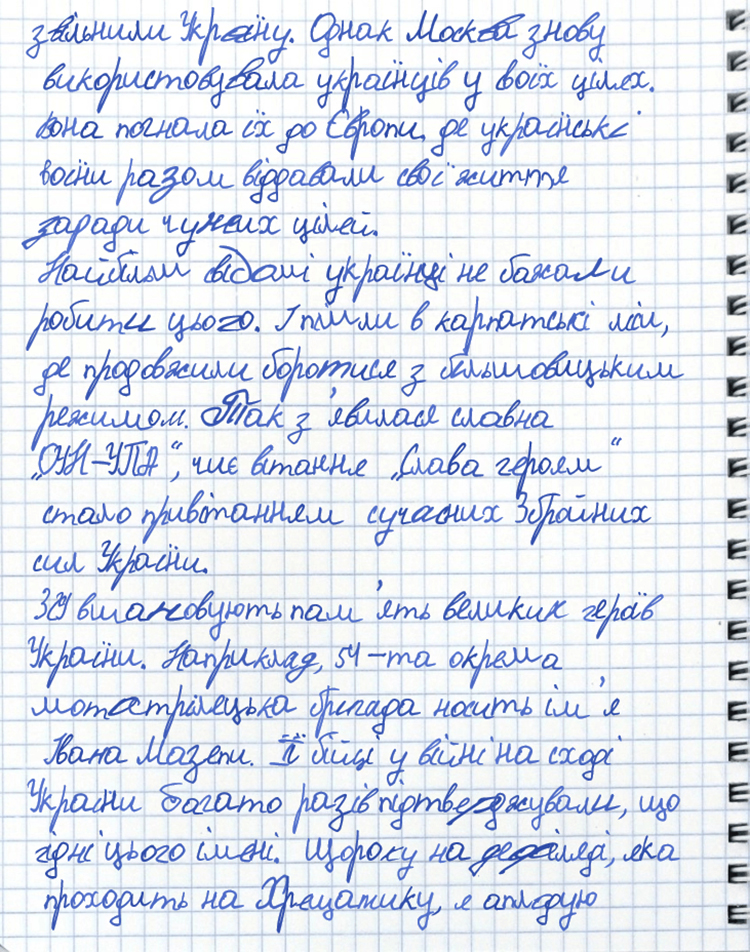 звільнили Україну. Однак Москва знову
використовувала українців у воїх цілях.
вона погнала їх до Європи, де українські
воїни разом віддавали свої життя
заради чужих цілей.
Найбільш свідомі українці не бажали
робити цього. І пішли в карпатські ліси,
де продовжили боротися з більшовицьким
режимом. Так з'явилася славна
„ОУН-УПА“, чиє вітання „Слава героям“
стало привітанням сучасних Збройних
сил України.
ЗСУ вшановують пам'ять великих героїв
України. Наприклад, 54-та окрема
мотострілецька бригада носить ім'я
Івана Мазепи. Її бійці у війні на сході
України багато разів підтверджували, що
гідні цього імені. Щороку на яка
проходить на Хрещатику, я аплодую